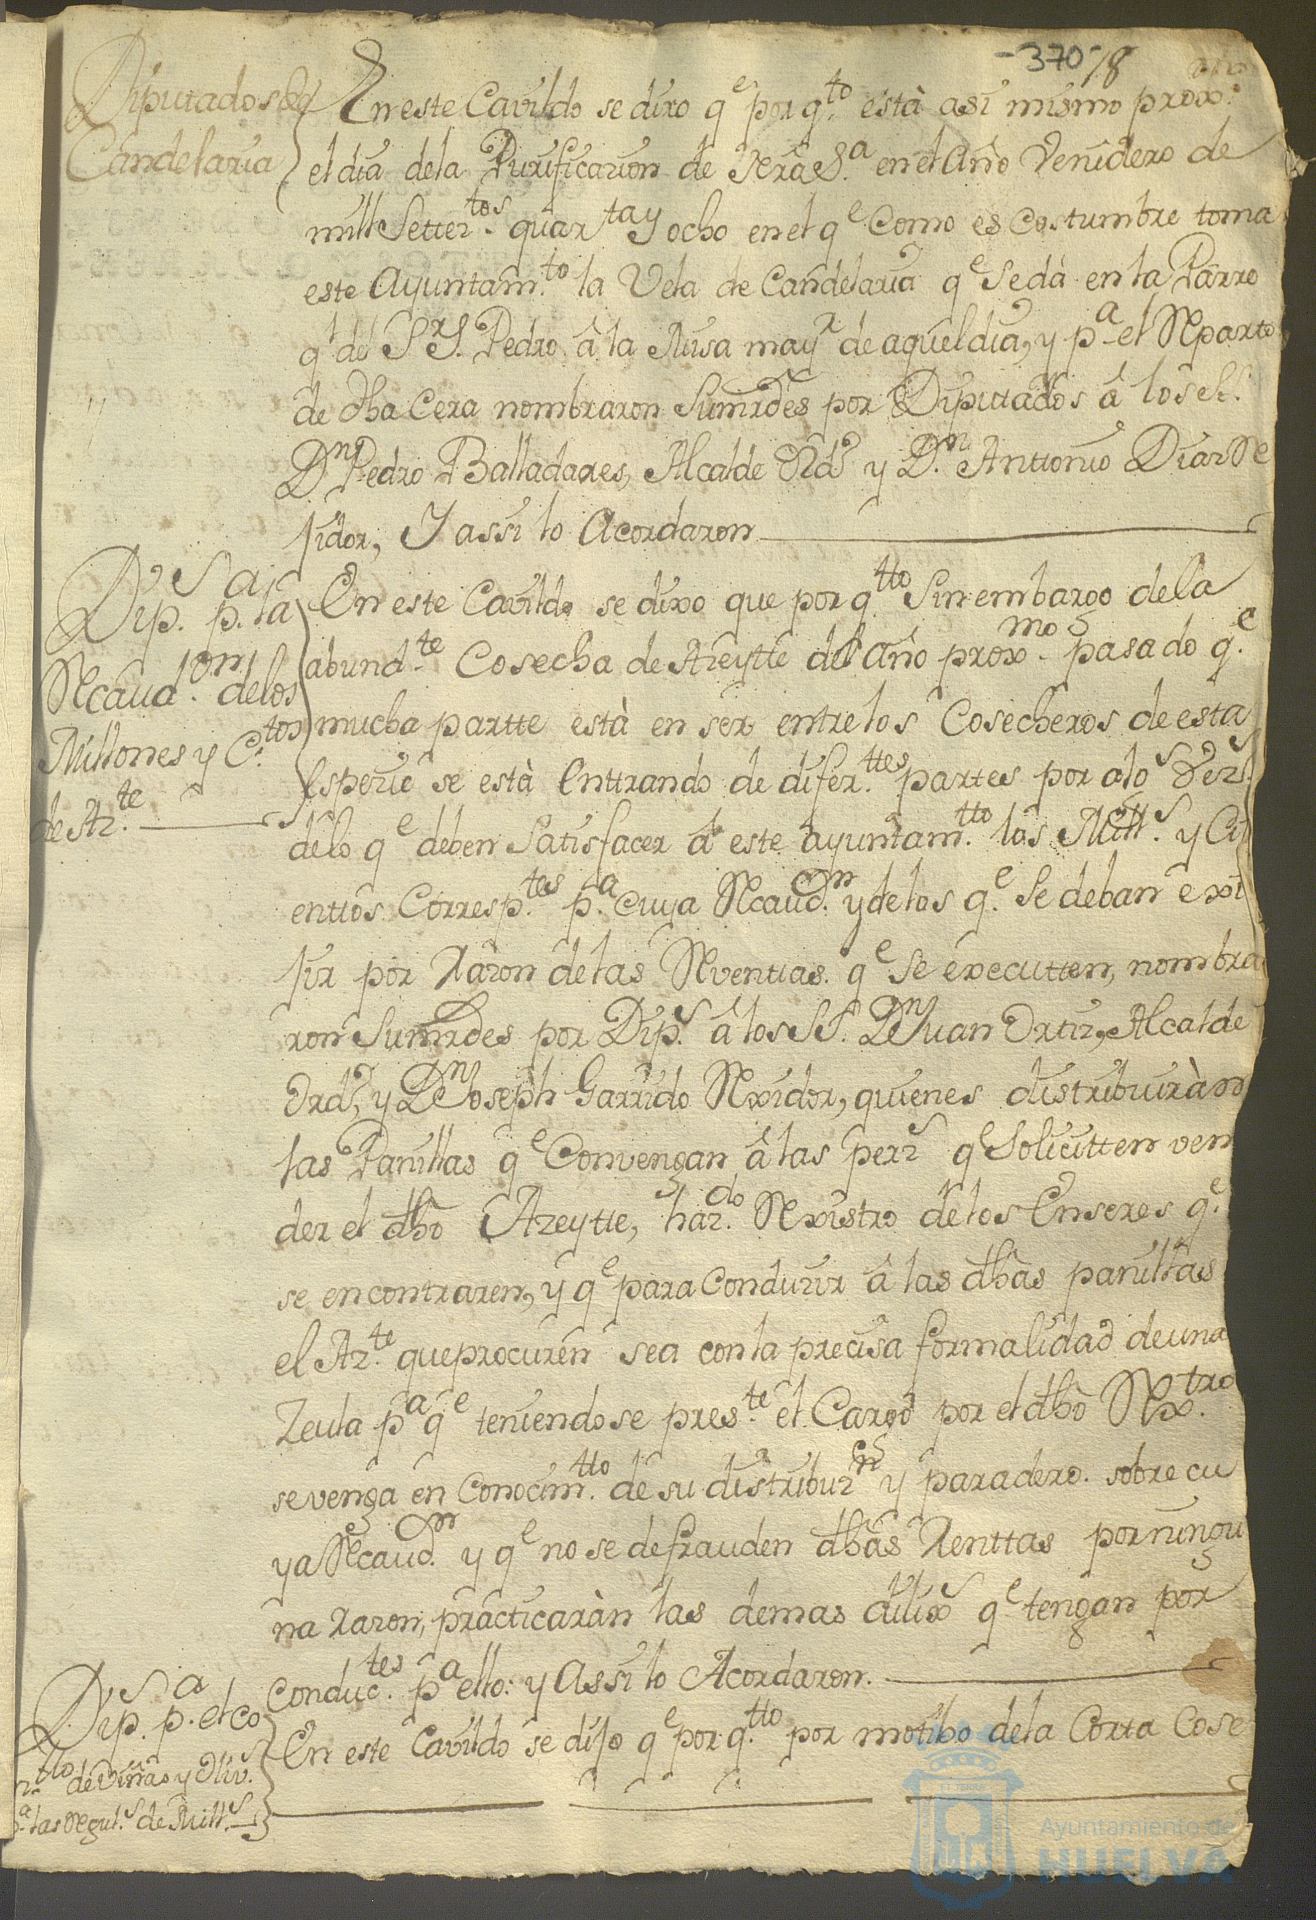 -370-
18
Diputados Sre
Candelaria
En este Cavildo se dixo qe por qto està asi mismo prox.o
el dia dela Purificacion de Nra Sa. en el Año Venidero de
mill Settectos. quartay ocho en el qe Como es costumbre toma
este Ayuntamto. la Vela de Candelaria qe se dà en la Parro
ql del Sr S. Pedro â la Misa mayr de aquel dia, y pa el Reparto
de dha Cera nombraron Sumrdes por Diputados â los SS.
Dn Pedro Balladares, Alcalde Ordo y Dn. Antonio Diaz Re
jidor, Y assi lo Acordaron
Dips. pa. la
Recaudon. delos
Millones y Ctos
de Azte.
En este Cavildo se dixo que por qtto Sin embargo dela
abundte. Cosecha de Azeytte del Año proxmo. pasado qe.
mucha partte està en ser entre los Cosecheros de esta
Especie se està Enttrando de diferttes. partes por alo
delo qe deben Satisfacer â este ayuntamtto. los Mills. y Ci
enttos Corresptes. pa. cuya Recaudn. y de los qe. Se deban exi
jir por Razon de las Reventtas. qe se executten, nombra
ron Sumrdes por Dips. â los SS. Dn Juan Ortiz, Alcalde
Ordo, y Dn Joseph Garrido Rexidor, quienes distribuiràn
las Panillas qe Convengan â las pers qe Solicitten ven
der el dho Azeytte, hazdo. Rexistro de los Enseres qe.
se encontraren, y qe para Conducir â las dhas panillas
el Azte. que procuren sea con la precisa formalidad de una
Zeula pa qe teniendose preste. el Cargo por el dho Rextro.
se venga en Conocimtto. de su distribuzn y paradero. sobre cu
ya Recaudn. y qe no se defrauden dhas Renttas por ningu
na razon, practicaràn las demas dilixs qe tengan por
Conductes. pa ello: y Assi lo Acordaron.
Dips. pa. el co
ntto de Viñas y Oliv.s
pa. las Regul.s de Mills.
En este Cavildo se dijo qe por qtto por motibo dela Corta Cose
Ayuntamiento de
HUELVA